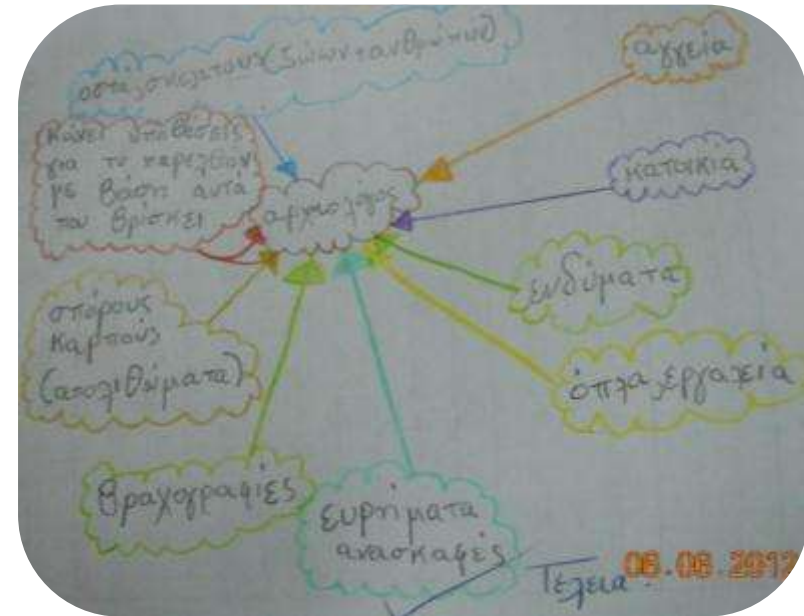 οστά, σκελετούς (ζώων + ανθρώπων)
αγγεία
κάνει υποθέσεις
για το παρελθόν
με βάση αυτά
που βρίσκει
αρχαιολόγος
κατοικία
ενδύματα
σπόρους
καρπούς
(απολιθώματα)
όπλα, εργαλεία
βραχογραφίες
ευρήματα
ανασκαφές
Τέλεια!